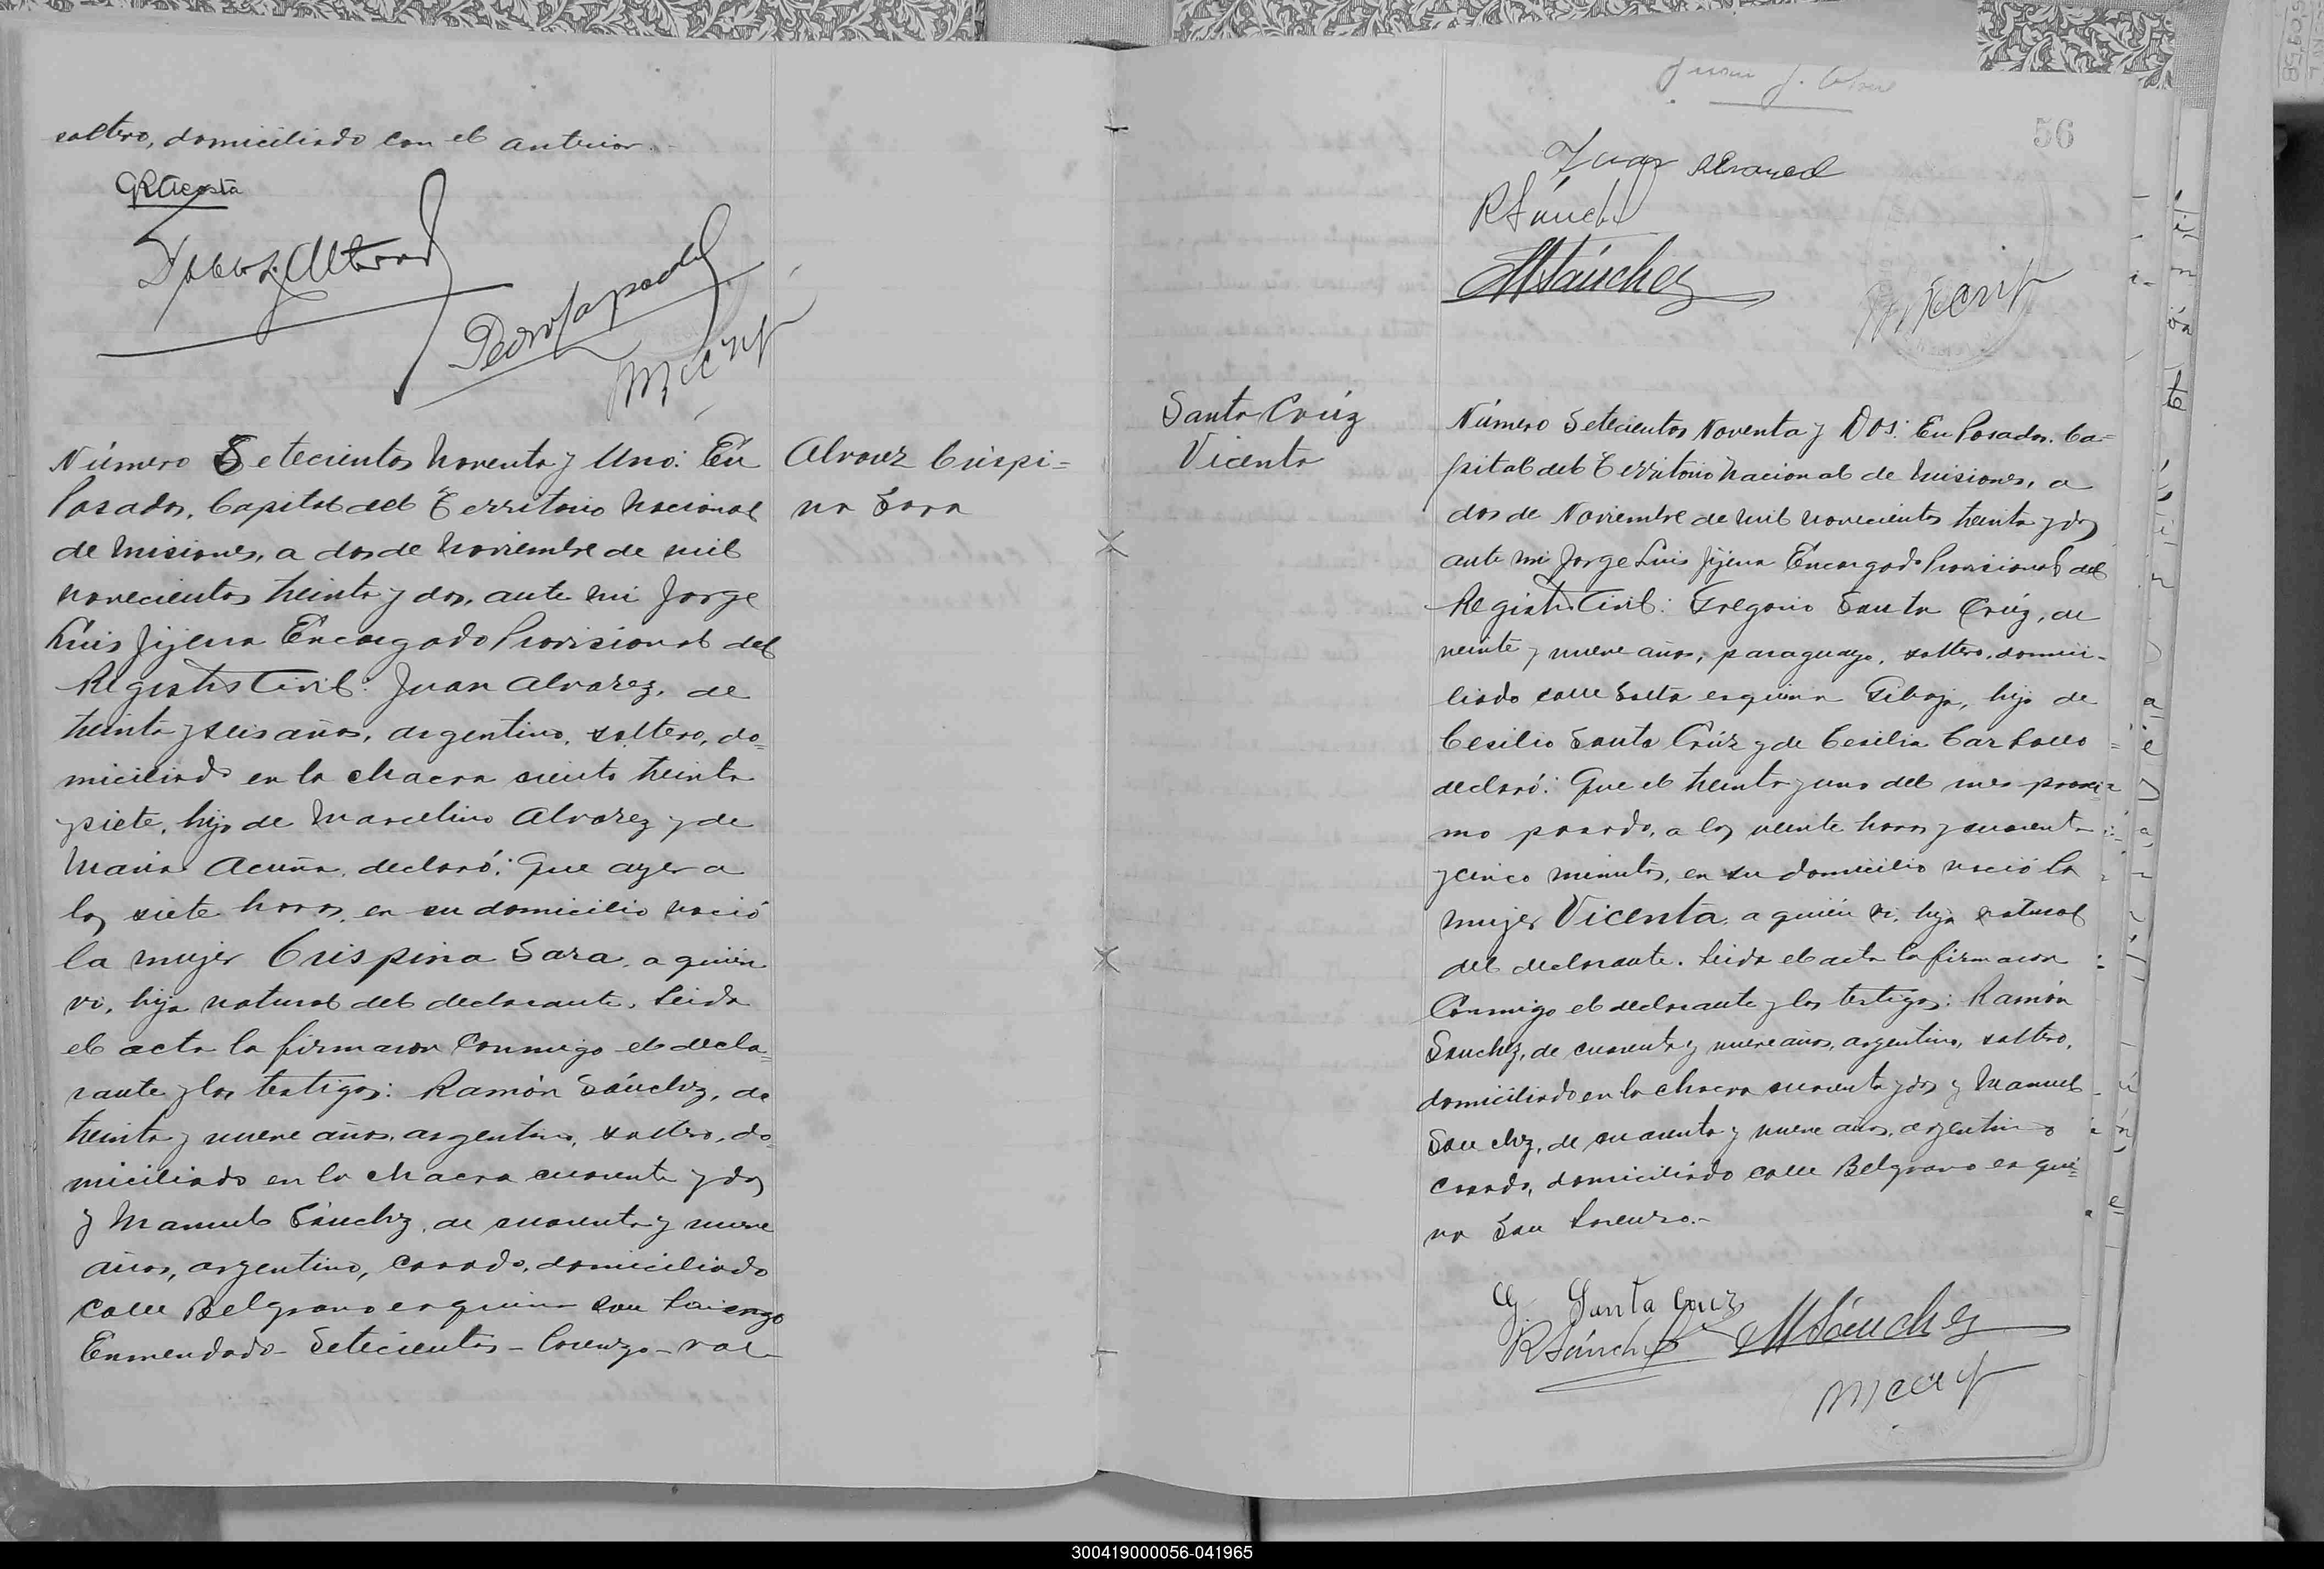 soltero, domiciliado con el anterior.-
GRAcosta
Número Setecientos Noventa y Uno: En
Posadas, Capital del Territorio Nacional
de Misiones, a dos de Noviembre de mil
novecientos treinta y dos, ante mi Jorge
Luis Jijena Encargado Provisional del
Registro Civil: Juan Alvarez, de
treinta y seis años, argentino, soltero, do=
miciliado en la chacra siento treinta
y siete, hijo de Marcelino Alvarez y de
Maria Acuña, declaró: Que ayer a
las siete horas, en su domicilio nació
la mujer Crispina Sara, a quién
vi, hija natural del declarante. Leida
el acta la firmaron conmigo el decla=
rante y los testigos: Ramón Sánchez, de
treinta y nueve años, argentino, soltero, do=
miciliado en la chacra cuarenta y dos
y Manuel Sánchez, de cuarenta y nueve
años, argentino, casado, domiciliado
calle Belgrano esquina San Lorenzo
Enmendado - Setecientos - Lorenzo - vale
Alvarez Crispi=
na Sara
56
Juan Alvarez
R Sánchez
M Sánchez
Santa Crúz
Vicenta
Número Setecientos Noventa y Dos: En Posadas, Ca=
pital del Territorio Nacional de Misiones, a
dos de Noviembre de mil novecientos treinta y dos
ante mi Jorge Luis Jijena Encargado Provisional del
Registro Civil: Gregorio Santa Crúz, de
veinte y nueve años, paraguayo, soltero, domici-
liado calle Salta esquina Tiboja, hijo de
Cecilio Santa Crúz y de Cecilia Carballo
declaró: Que el treinta y uno del mes proxi=
mo pasado, a las veinte horas y cuarenta
y cinco minutos, en su domicilio nació la
mujer Vicenta, a quién vi, hija natural
del declarante. Leida el acta la firmaron
Conmigo el declarante y los testigos: Ramón
Sanchez, de cuarenta y nueve años, argentino, soltero,
domiciliado en la chacra cuarenta y dos y Manuel
Sanchez, de cuarenta y nueve años, argentino
casado, domiciliado calle Belgrano esqui=
na San Lorenzo.-
G. Santa Cruz
R Sánchez M Sánchez
300419000056-041965